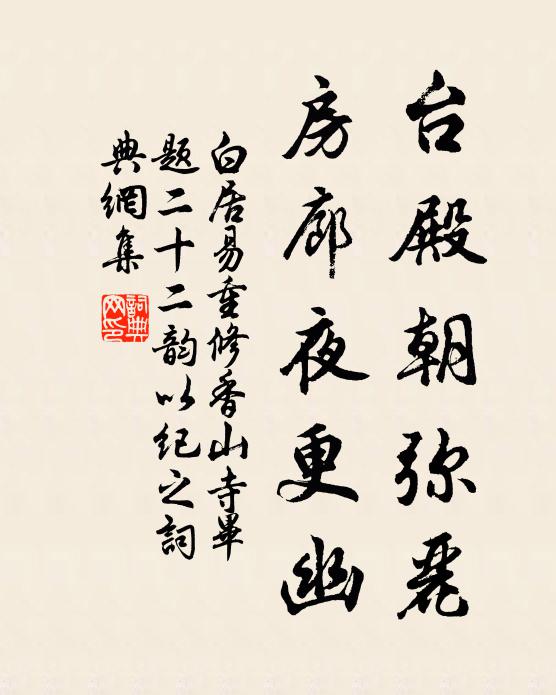 台殿朝弥麗
房廊夜更幽
白居易重修香山寺畢
题二十二韵以纪之詞
典網集
詞典
网印